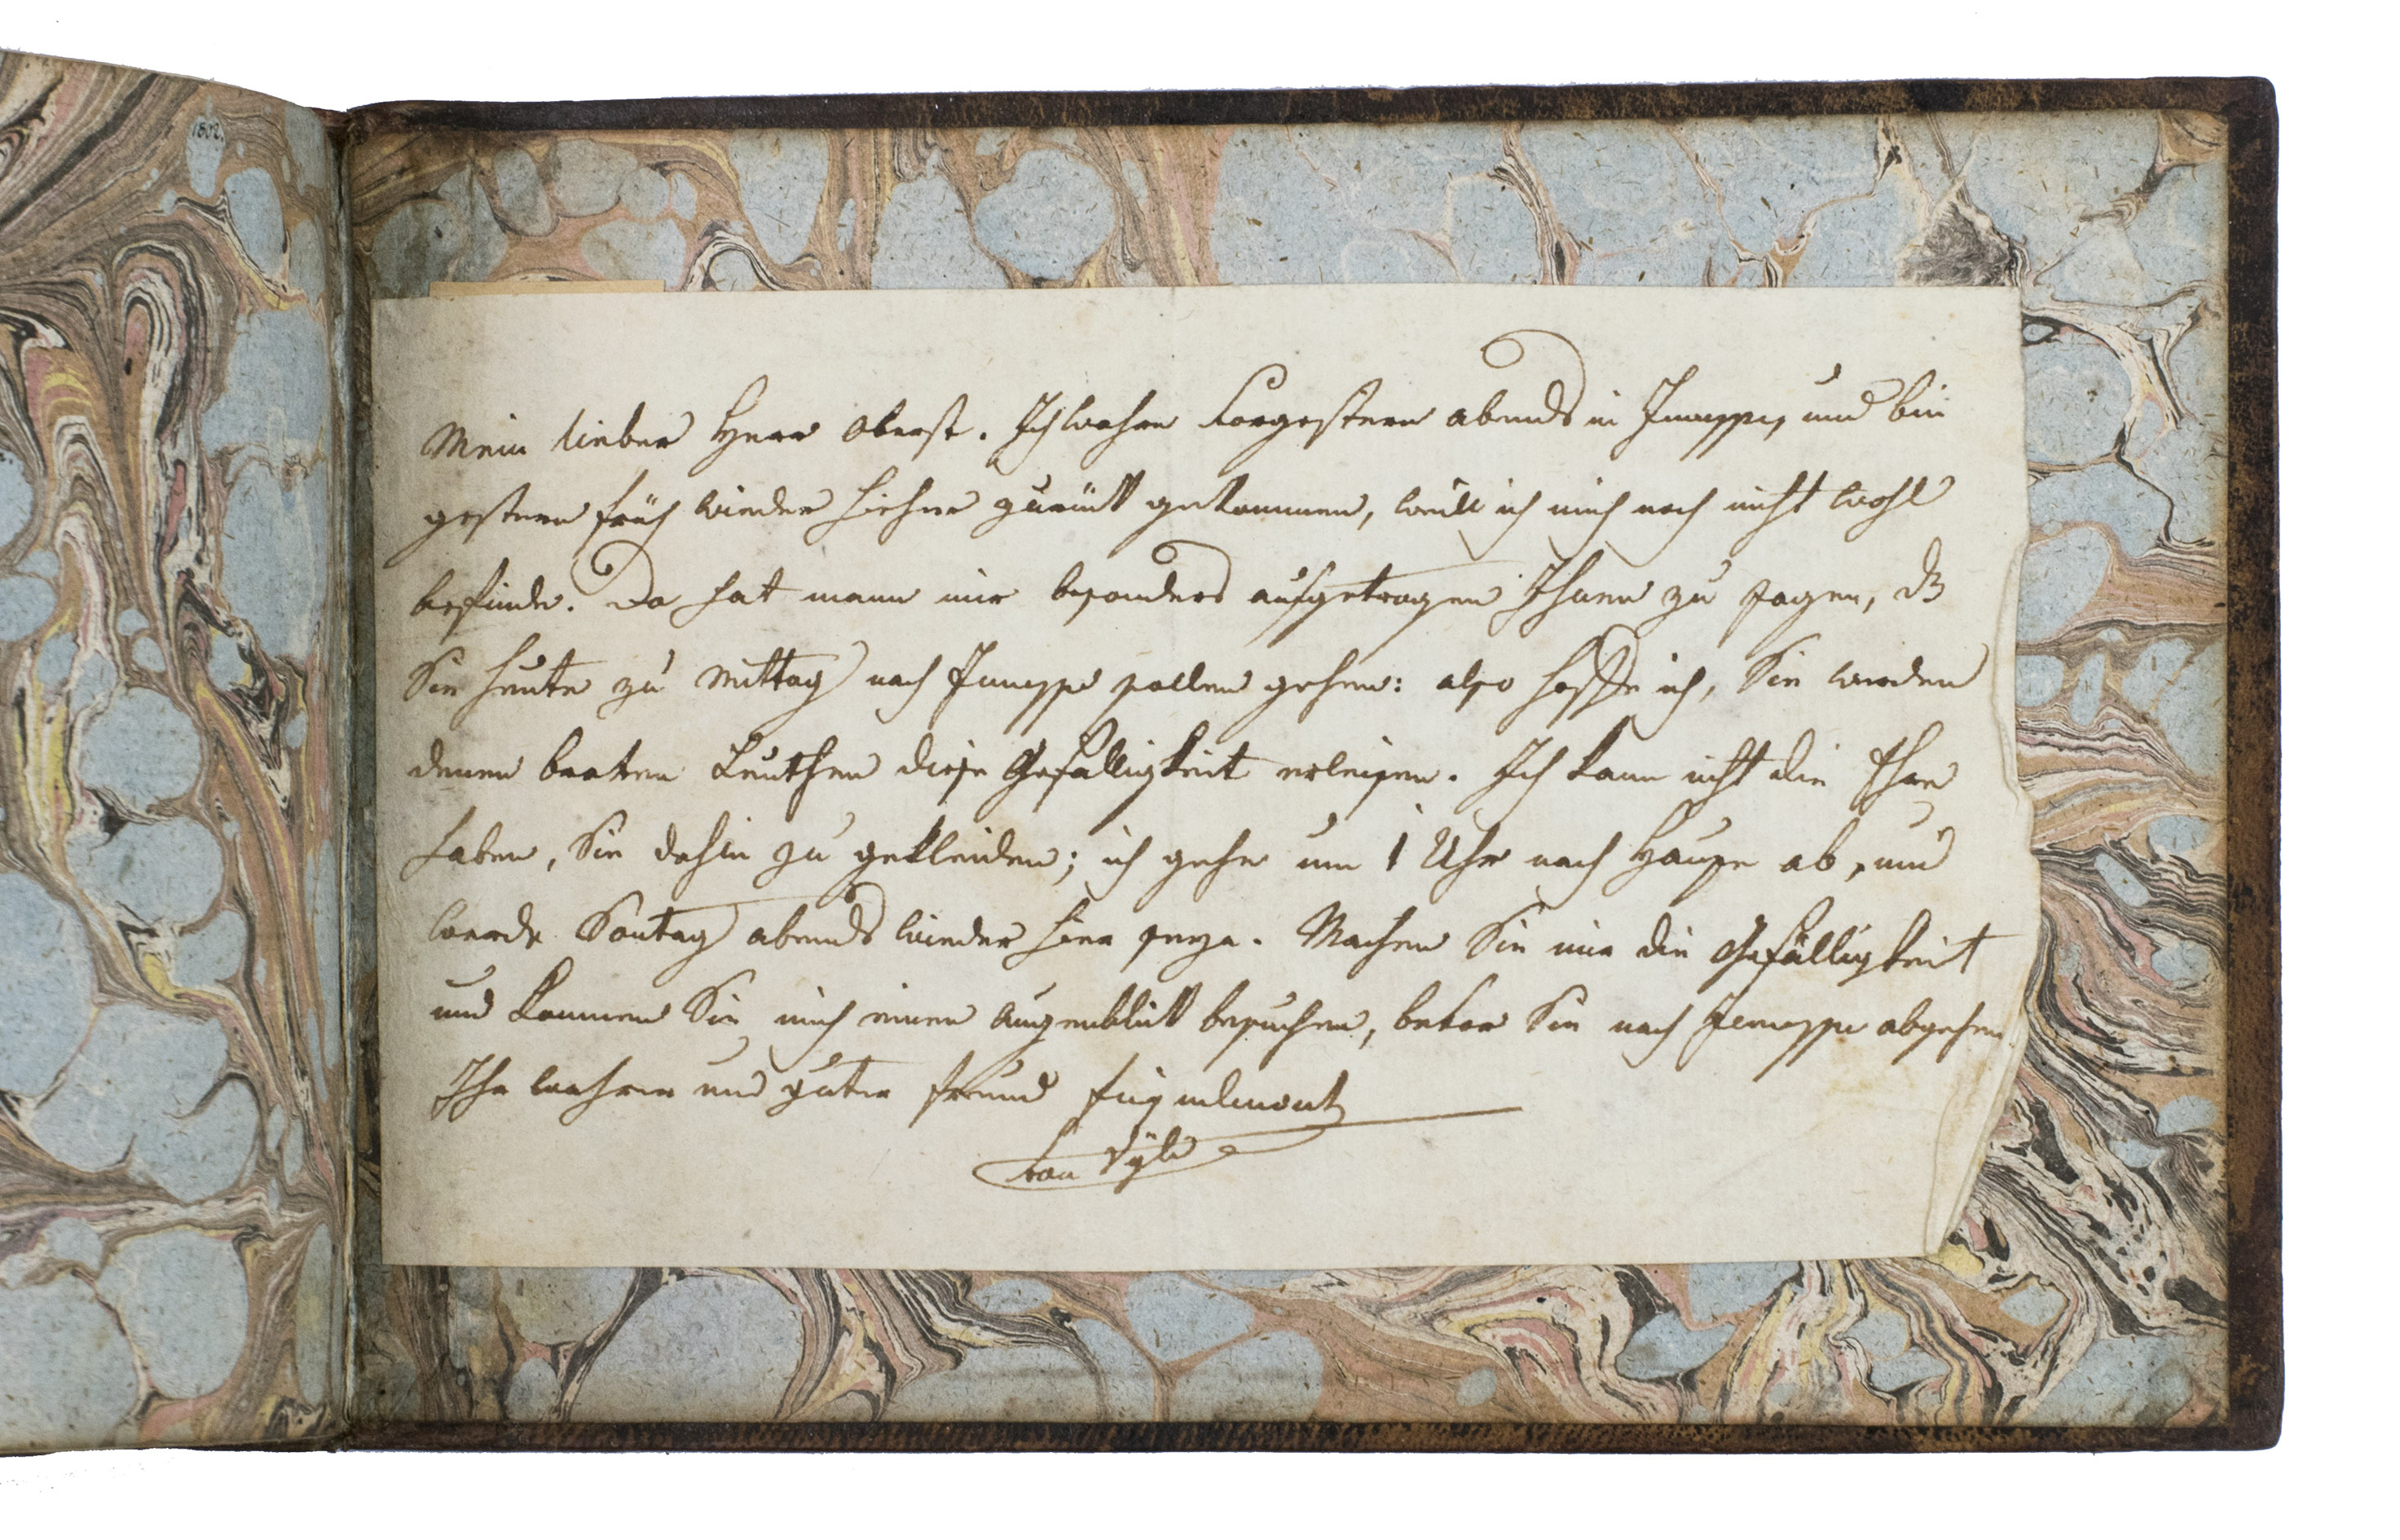 1802.
Mein lieber Herr Oberst. Ich wahre vorgestern abends in Jemeppe, und bin
gestern früh wieder hieher zurück gekommen, weill ich mich noch nicht wohl
befinde. Da hat mann mir besonders aufgetragen Ihnen zu sagen, dß
Sie heute zu Mittag nach Jemeppe sollen gehen: also hoffe ich, Sie werden
denen braven Leuthen diese Gefälligkeit erleisen. Ich kann nicht die Ehre
haben, Sie dahin zu gekleiden; ich gehe um 1 Uhr nach Hause ab, und
werde Sontag abends wieder hier seyn. Machen Sie mir die Gefälligkeit
und kommen Sie mich einen Augenblick besuchen, bevor Sie nach Jemeppe abgehen
Ihr wahrer und guter freund
von